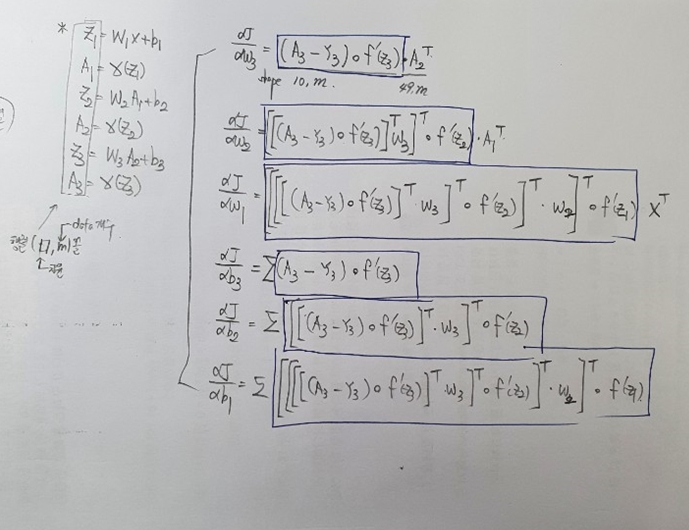 * Z₁ = W₁X+b₁
A₁ = γ(Z₁)
Z₂ = W₂A₁+b₂
A₂ = γ(Z₂)
Z₃ = W₃A₂+b₃
A₃ = γ(Z₃)
data 개수
행렬 (17, m)꼴
αJ/αW₃ = (A₃ − Y₃) ∘ f'(Z₃) · A₂ᵀ
shape 10, m. 49, m
αJ/αW₂ = [[(A₃ − Y₃) ∘ f'(Z₃)]ᵀ W₃]ᵀ ∘ f'(Z₂) · A₁ᵀ
αJ/αW₁ = [[[[(A₃ − Y₃) ∘ f'(Z₃)]ᵀ · W₃]ᵀ ∘ f'(Z₂)]ᵀ · W₂]ᵀ ∘ f'(Z₁) Xᵀ
αJ/αb₃ = Σ(A₃ − Y₃) ∘ f'(Z₃)
αJ/αb₂ = Σ [[(A₃ − Y₃) ∘ f'(Z₃)]ᵀ · W₃]ᵀ ∘ f'(Z₂)
αJ/αb₁ = Σ [[[[(A₃ − Y₃) ∘ f'(Z₃)]ᵀ · W₃]ᵀ ∘ f'(Z₂)]ᵀ · W₂]ᵀ ∘ f'(Z₁)